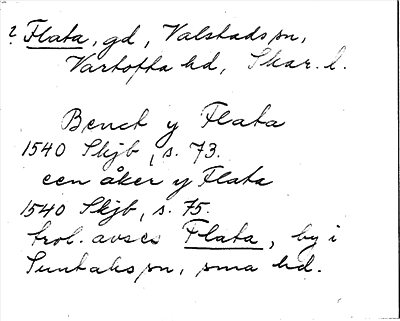 ? Flata, gd, Valstads sn,
Vartofta hd, Skar. l.
Benct y Flata
1540 Skjb, s. 73.
een åker y Flata
1540 Skjb, s. 75.
trol. avses Flata, by i
Suntaks sn, sma hd.